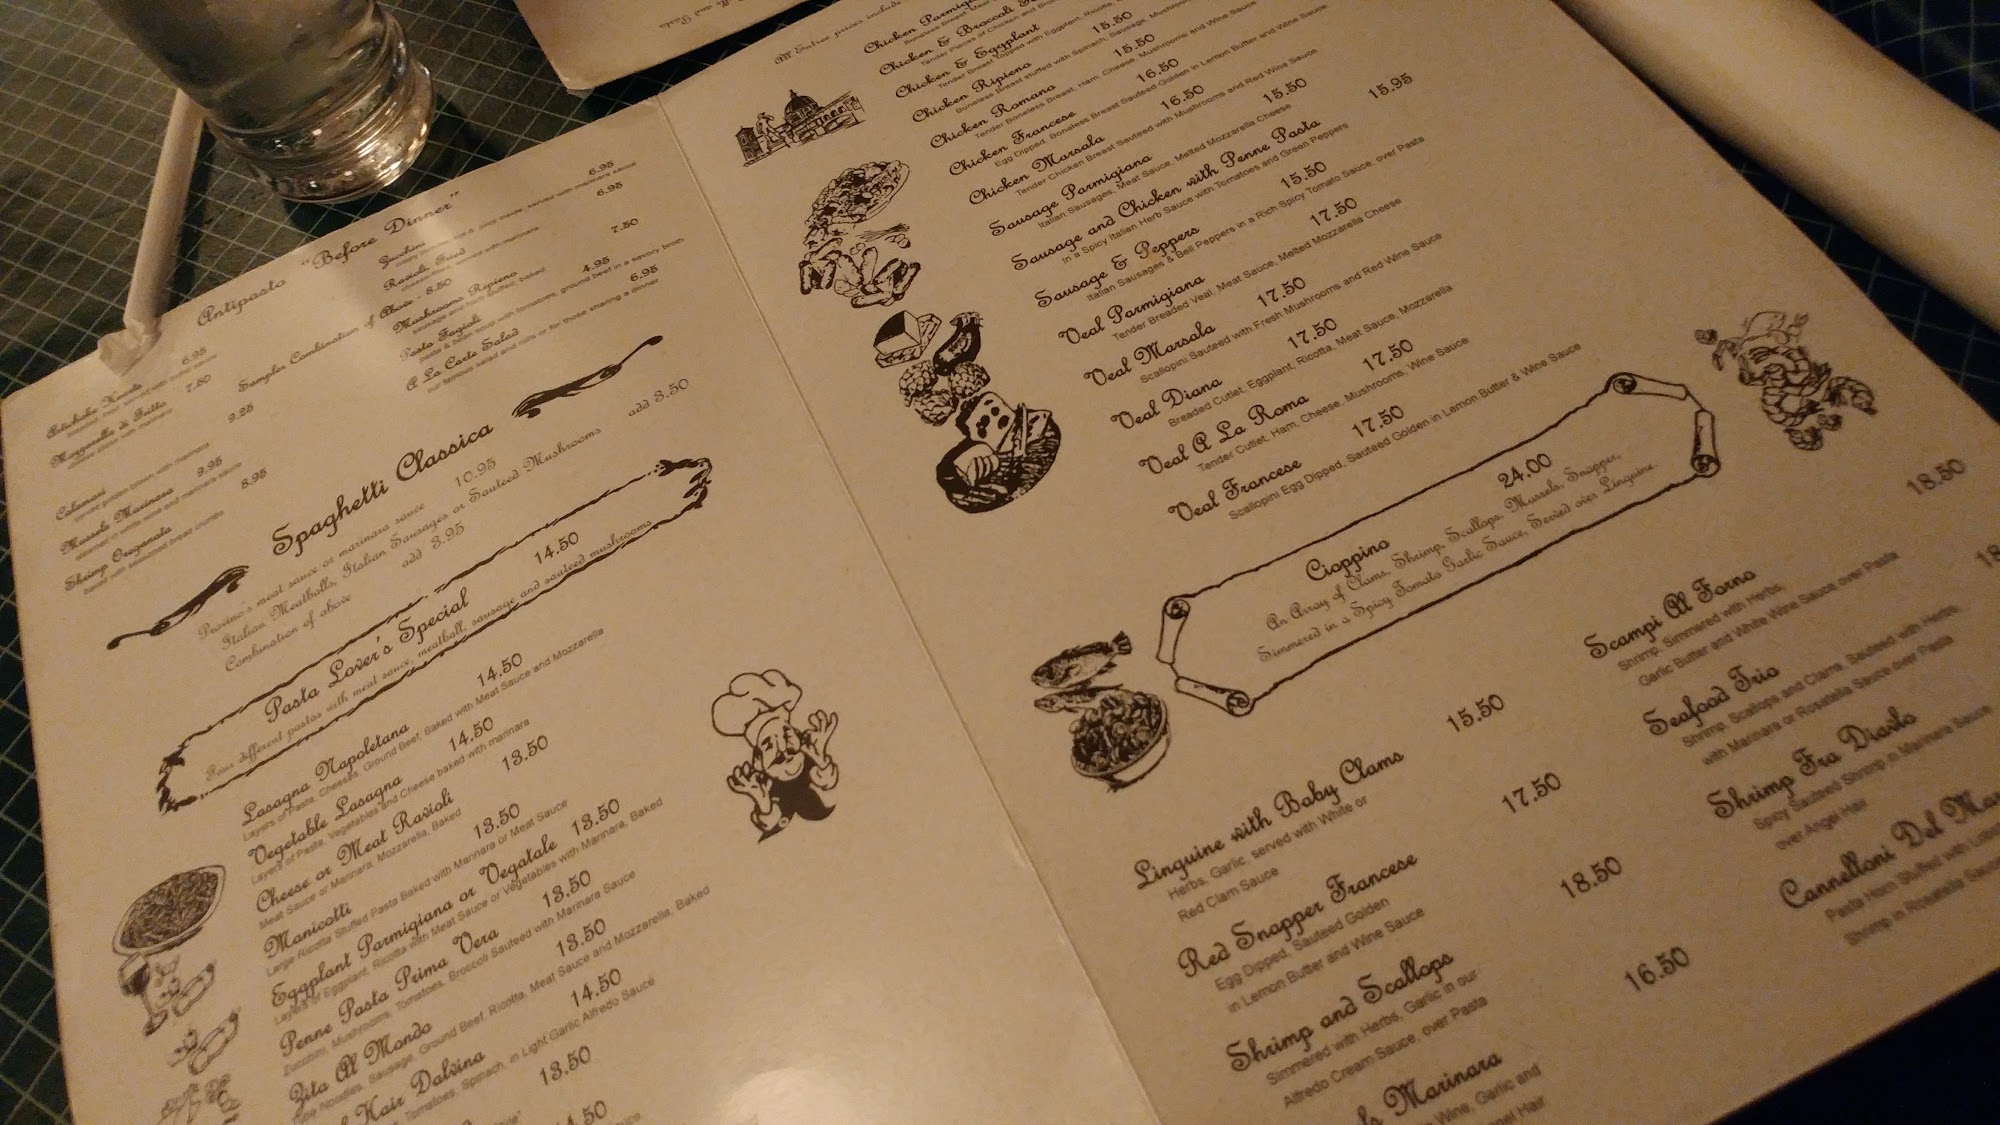 Antipasto "Before Dinner"
6.95
7.50
9.25
Calamari
Mussels Marinara 9.95
Shrimp Oreganata 8.95
baked with seasoned bread crumbs
Zucchini 6.95
Ravioli Fried 6.95
Sampler Combination of Above - 8.50
Mushrooms Ripieno 7.50
Pasta Fagioli 4.95
pasta & bean soup with tomatoes, ground beef in a savory broth
A La Carte Salad 6.95
our famous salad and rolls or for those sharing a dinner
add 3.50
Spaghetti Classica
meat sauce or marinara sauce 10.95
Italian Meatballs, Italian Sausages or Sauteed Mushrooms
Combination of above add 3.95
Pasta Lover's Special 14.50
Four different pastas with meat sauce, meatball, sausage and sauteed mushrooms
Lasagna Napoletana 14.50
Layers of Pasta, Cheeses, Ground Beef, Baked with Meat Sauce and Mozzarella
Vegetable Lasagna 14.50
Layers of Pasta, Vegetables and Cheese baked with marinara
Cheese or Meat Ravioli 13.50
Meat Sauce or Marinara, Mozzarella, Baked
Manicotti 13.50
Large Ricotta Stuffed Pasta Baked with Marinara or Meat Sauce
Eggplant Parmigiana or Vegatale 13.50
Layers of Eggplant, Ricotta with Meat Sauce or Vegetables with Marinara, Baked
Penne Pasta Prima Vera 13.50
Zucchini, Mushrooms, Tomatoes, Broccoli Sauteed with Marinara Sauce
Zita Al Mondo 13.50
Noodles, Sausage, Ground Beef, Ricotta, Meat Sauce and Mozzarella, Baked
Hair Dalvina 14.50
Tomatoes, Spinach, in Light Garlic Alfredo Sauce
13.50
14.50
All Entree prices include
Chicken
Boneless Breast
Chicken & Broccoli
Tender Pieces of Chicken and
Chicken & Eggplant 15.50
Tender Breast Topped with Eggplant, Ricotta,
Chicken Ripieno 15.50
Boneless Breast stuffed with Spinach, Sausage,
Chicken Romano 16.50
Tender Boneless Breast, Ham, Cheese, Mushrooms and Wine Sauce
Chicken Francese 16.50
Egg Dipped, Boneless Breast Sauteed Golden in Lemon Butter and Wine Sauce
Chicken Marsala 15.50
Tender Chicken Breast Sauteed with Mushrooms and Red Wine Sauce
Sausage Parmigiana
Italian Sausages, Meat Sauce, Melted Mozzarella Cheese
Sausage and Chicken with Penne Pasta 15.95
In a Spicy Italian Herb Sauce with Tomatoes and Green Peppers
Sausage & Peppers 15.50
Italian Sausages & Bell Peppers in a Rich Spicy Tomato Sauce, over Pasta
Veal Parmigiana 17.50
Tender Breaded Veal, Meat Sauce, Melted Mozzarella Cheese
Veal Marsala 17.50
Scallopini Sauteed with Fresh Mushrooms and Red Wine Sauce
Veal Diana 17.50
Breaded Cutlet, Eggplant, Ricotta, Meat Sauce, Mozzarella
Veal A La Roma 17.50
Tender Cutlet, Ham, Cheese, Mushrooms, Wine Sauce
Veal Francese 17.50
Scallopini Egg Dipped, Sauteed Golden in Lemon Butter & Wine Sauce
Cioppino 24.00
An Array of Clams, Shrimp, Scallops, Mussels, Snapper,
Simmered in a Spicy Tomato Garlic Sauce, Served over Linguine.
Linguine with Baby Clams 15.50
Herbs, Garlic, served with White or
Red Clam Sauce
Red Snapper Francese 17.50
Egg Dipped, Sauteed Golden
in Lemon Butter and Wine Sauce
Shrimp and Scallops 18.50
Simmered with Herbs, Garlic in our
Alfredo Cream Sauce, over Pasta
Marinara 16.50
Wine, Garlic and
Hair
Scampi Al Forno 18.50
Shrimp, Simmered with Herbs,
Garlic Butter and White Wine Sauce over Pasta
Seafood Trio
Shrimp, Scallops and Clams, Sauteed with Herbs,
with Marinara or Rosatella Sauce over Pasta
Shrimp Fra Diavlo
Spicy Sauteed Shrimp in Marinara Sauce
over Angel Hair
Cannelloni Del
Pasta Horn Stuffed with
Shrimp in Rosatella